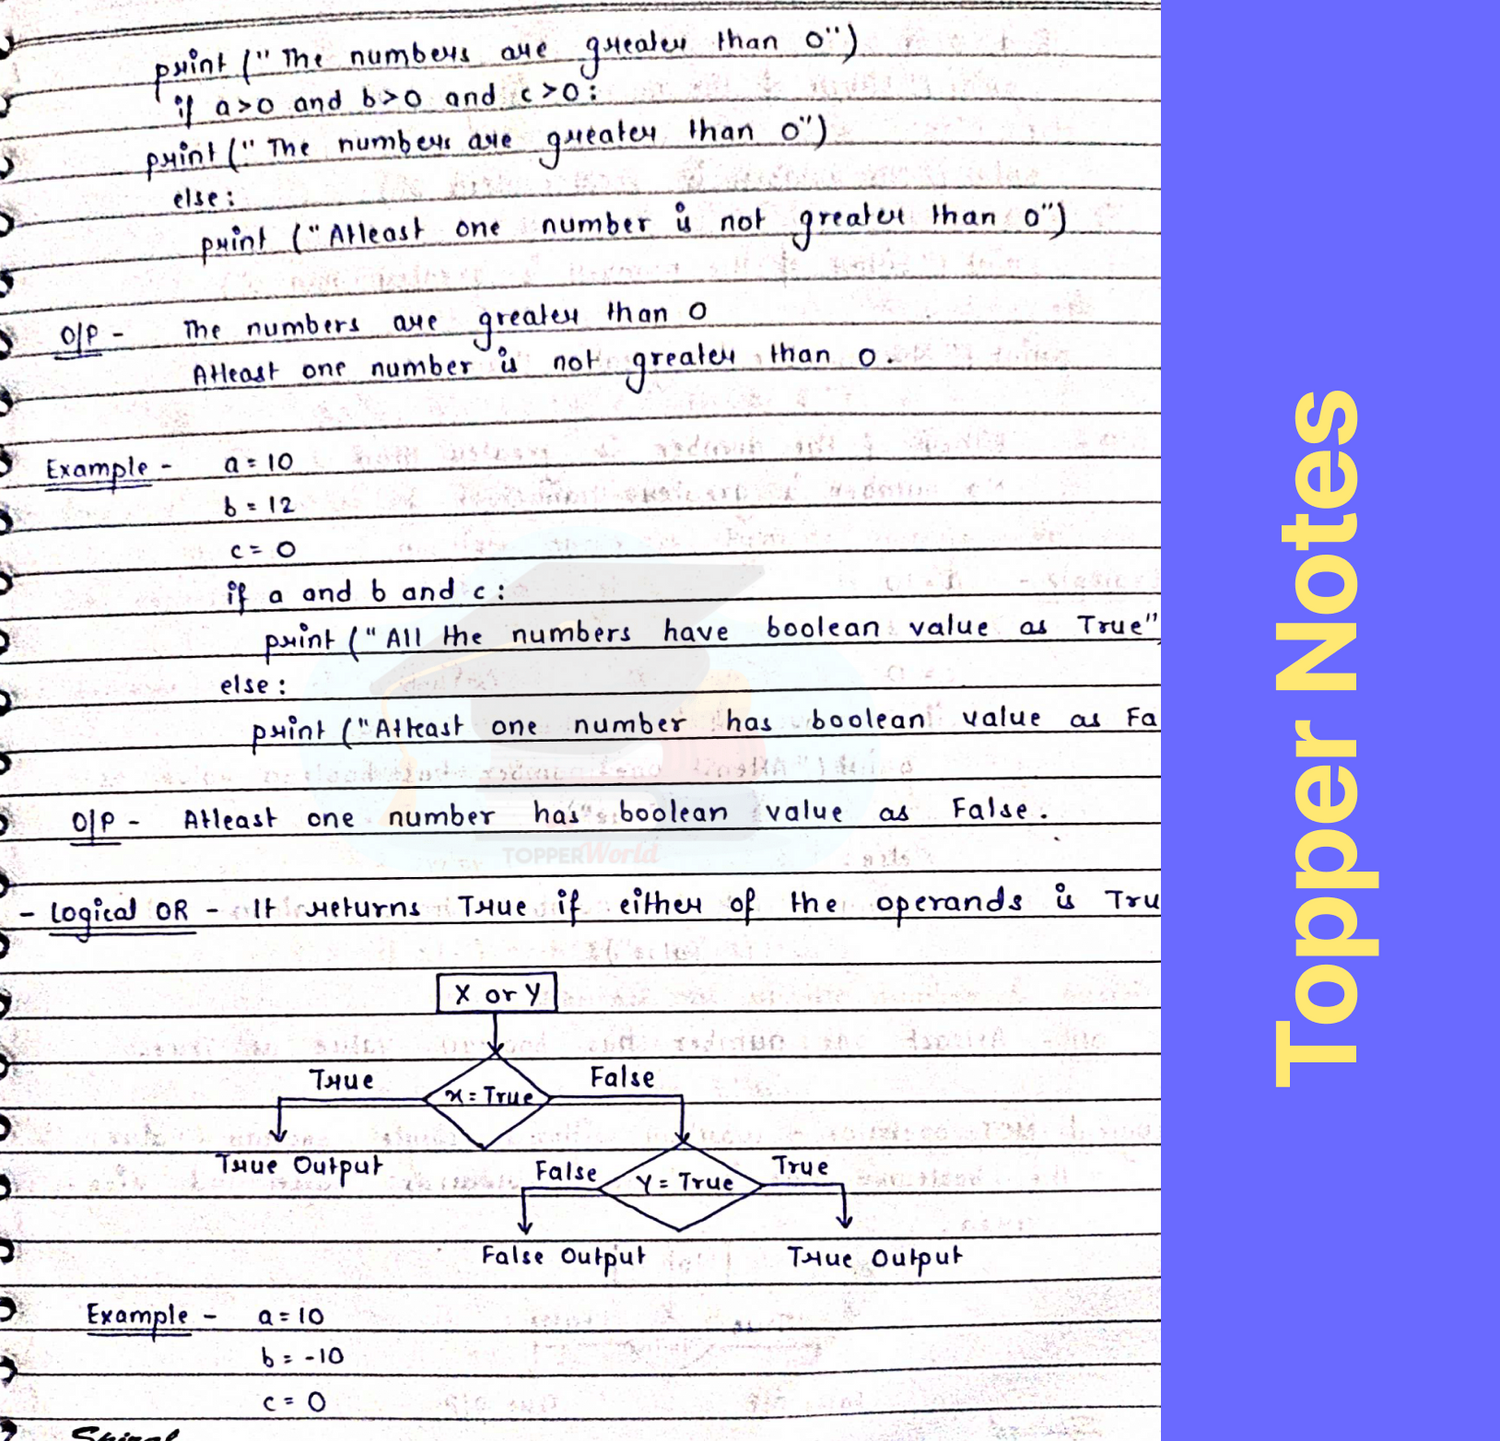 print ("The numbers are greater than 0")
if a>0 and b>0 and c>0:
print ("The numbers are greater than 0")
else:
print ("Atleast one number is not greater than 0")
O/P - The numbers are greater than 0
Atleast one number is not greater than 0.
Example - a = 10
b = 12
c = 0
if a and b and c:
print ("All the numbers have boolean value as True"
else:
print ("Atleast one number has boolean value as Fa
O/P - Atleast one number has boolean value as False.
TOPPERWorld
- Logical OR - It returns True if either of the operands is Tru
X or Y
True
x = True
False
True Output
False
Y = True
True
False Output
True Output
Example - a = 10
b = -10
c = 0
Spiral
Topper Notes